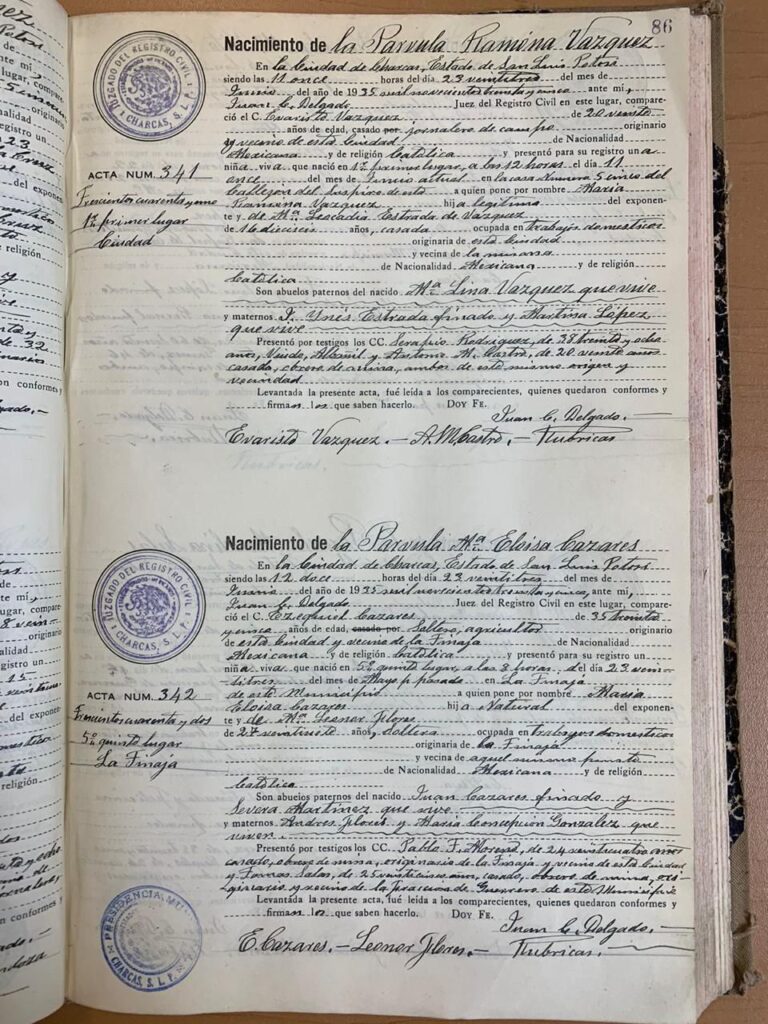 86
Nacimiento de la Parvula Ramona Vazquez
En la Ciudad de Charcas, Estado de San Luis Potosi
siendo las 11 once horas del día 23 veintitres del mes de
Junio del año de 1935 mil novecientos treinta y cinco ante mi,
Juan C. Delgado Juez del Registro Civil en este lugar, compare-
ció el C. Evaristo Vazquez de 20 veinte
años de edad, casado por jornalero de campo originario
y vecino de esta Ciudad de Nacionalidad
Mexicana y de religión Católica y presentó para su registro un a
niña viva que nació en 1º primer lugar, a las 12 horas el día 11
once del mes de Junio actual en la casa número 5 cinco del
Callejon del Suspiro de esta a quien pone por nombre Maria
Ramona Vazquez hij a legítima del exponen-
te y de Mª Leocadia Estrada de Vazquez
de 16 dieciseis años, casada ocupada en trabajos domesticos
originaria de esta Ciudad
y vecina de la misma
de Nacionalidad Mexicana y de religión
Católica
Son abuelos paternos del nacido Mª Lina Vazquez que vive
y maternos J. Ynés Estrada finado y Martina López
que vive
Presentó por testigos los CC. Serapio Rodriguez, de 38 treinta y ocho
años, Viudo, Albañil y Antonio M. Castro, de 20 veinte años
casado, obrero de mina, ambos de este mismo origen y
vecindad
Levantada la presente acta, fué leída a los comparecientes, quienes quedaron conformes y
firman los que saben hacerlo. DOY FE.
Juan C. Delgado.
Evaristo Vazquez. - A. M. Castro. - Rubricas
JUZGADO DEL REGISTRO CIVIL
CHARCAS, S. L. P.
ACTA NUM. 341
Trescientos cuarenta y uno
1º primer lugar
Ciudad
Nacimiento de la Parvula Mª Eloisa Cazares
En la Ciudad de Charcas, Estado de San Luis Potosi
siendo las 12 doce horas del día 23 veintitres del mes de
Junio del año de 1935 mil novecientos treinta y cinco, ante mi,
Juan C. Delgado Juez del Registro Civil en este lugar, compare-
ció el C. Ezequiel Cazares de 35 treinta
y cinco años de edad, casado por Soltero, agricultor originario
de esta Ciudad y vecino de la Tinaja de Nacionalidad
Mexicana y de religión Católica y presentó para su registro un
niña viva que nació en 5º quinto lugar, a las 3 horas, del día 23 vein
titres del mes de Mayo p. pasado en La Tinaja
de este Municipio a quien pone por nombre Maria
Eloisa Cazares hij a Natural del exponen-
te y de Mª Leonor Flores
de 27 veintisiete años, soltera ocupada en trabajos domesticos
originaria de La Tinaja
y vecina de aquel mismo punto
de Nacionalidad Mexicana y de religión
Católica
Son abuelos paternos del nacido Juan Cazares finado y
Severa Martinez que vive
y maternos Andres Flores y Maria Concepción Gonzalez que
viven
Presentó por testigos los CC. Pablo F. Moreno, de 24 veinticuatro años
casado, obrero de mina, originario de la Tinaja y vecino de esta Ciudad
y Tomas Salas, de 25 veinticinco años, casado, obrero de mina, ori-
ginario y vecino de la de Guerrero de este Municipio
Levantada la presente acta, fué leída a los comparecientes, quienes quedaron conformes y
firman los que saben hacerlo. DOY FE.
Juan C. Delgado.
E. Cazares. - Leonor Flores. - Rubricas.
JUZGADO DEL REGISTRO CIVIL
CHARCAS, S. L. P.
ACTA NUM. 342
Trescientos cuarenta y dos
5º quinto lugar
La Tinaja
PRESIDENCIA
CHARCAS, S. L. P.